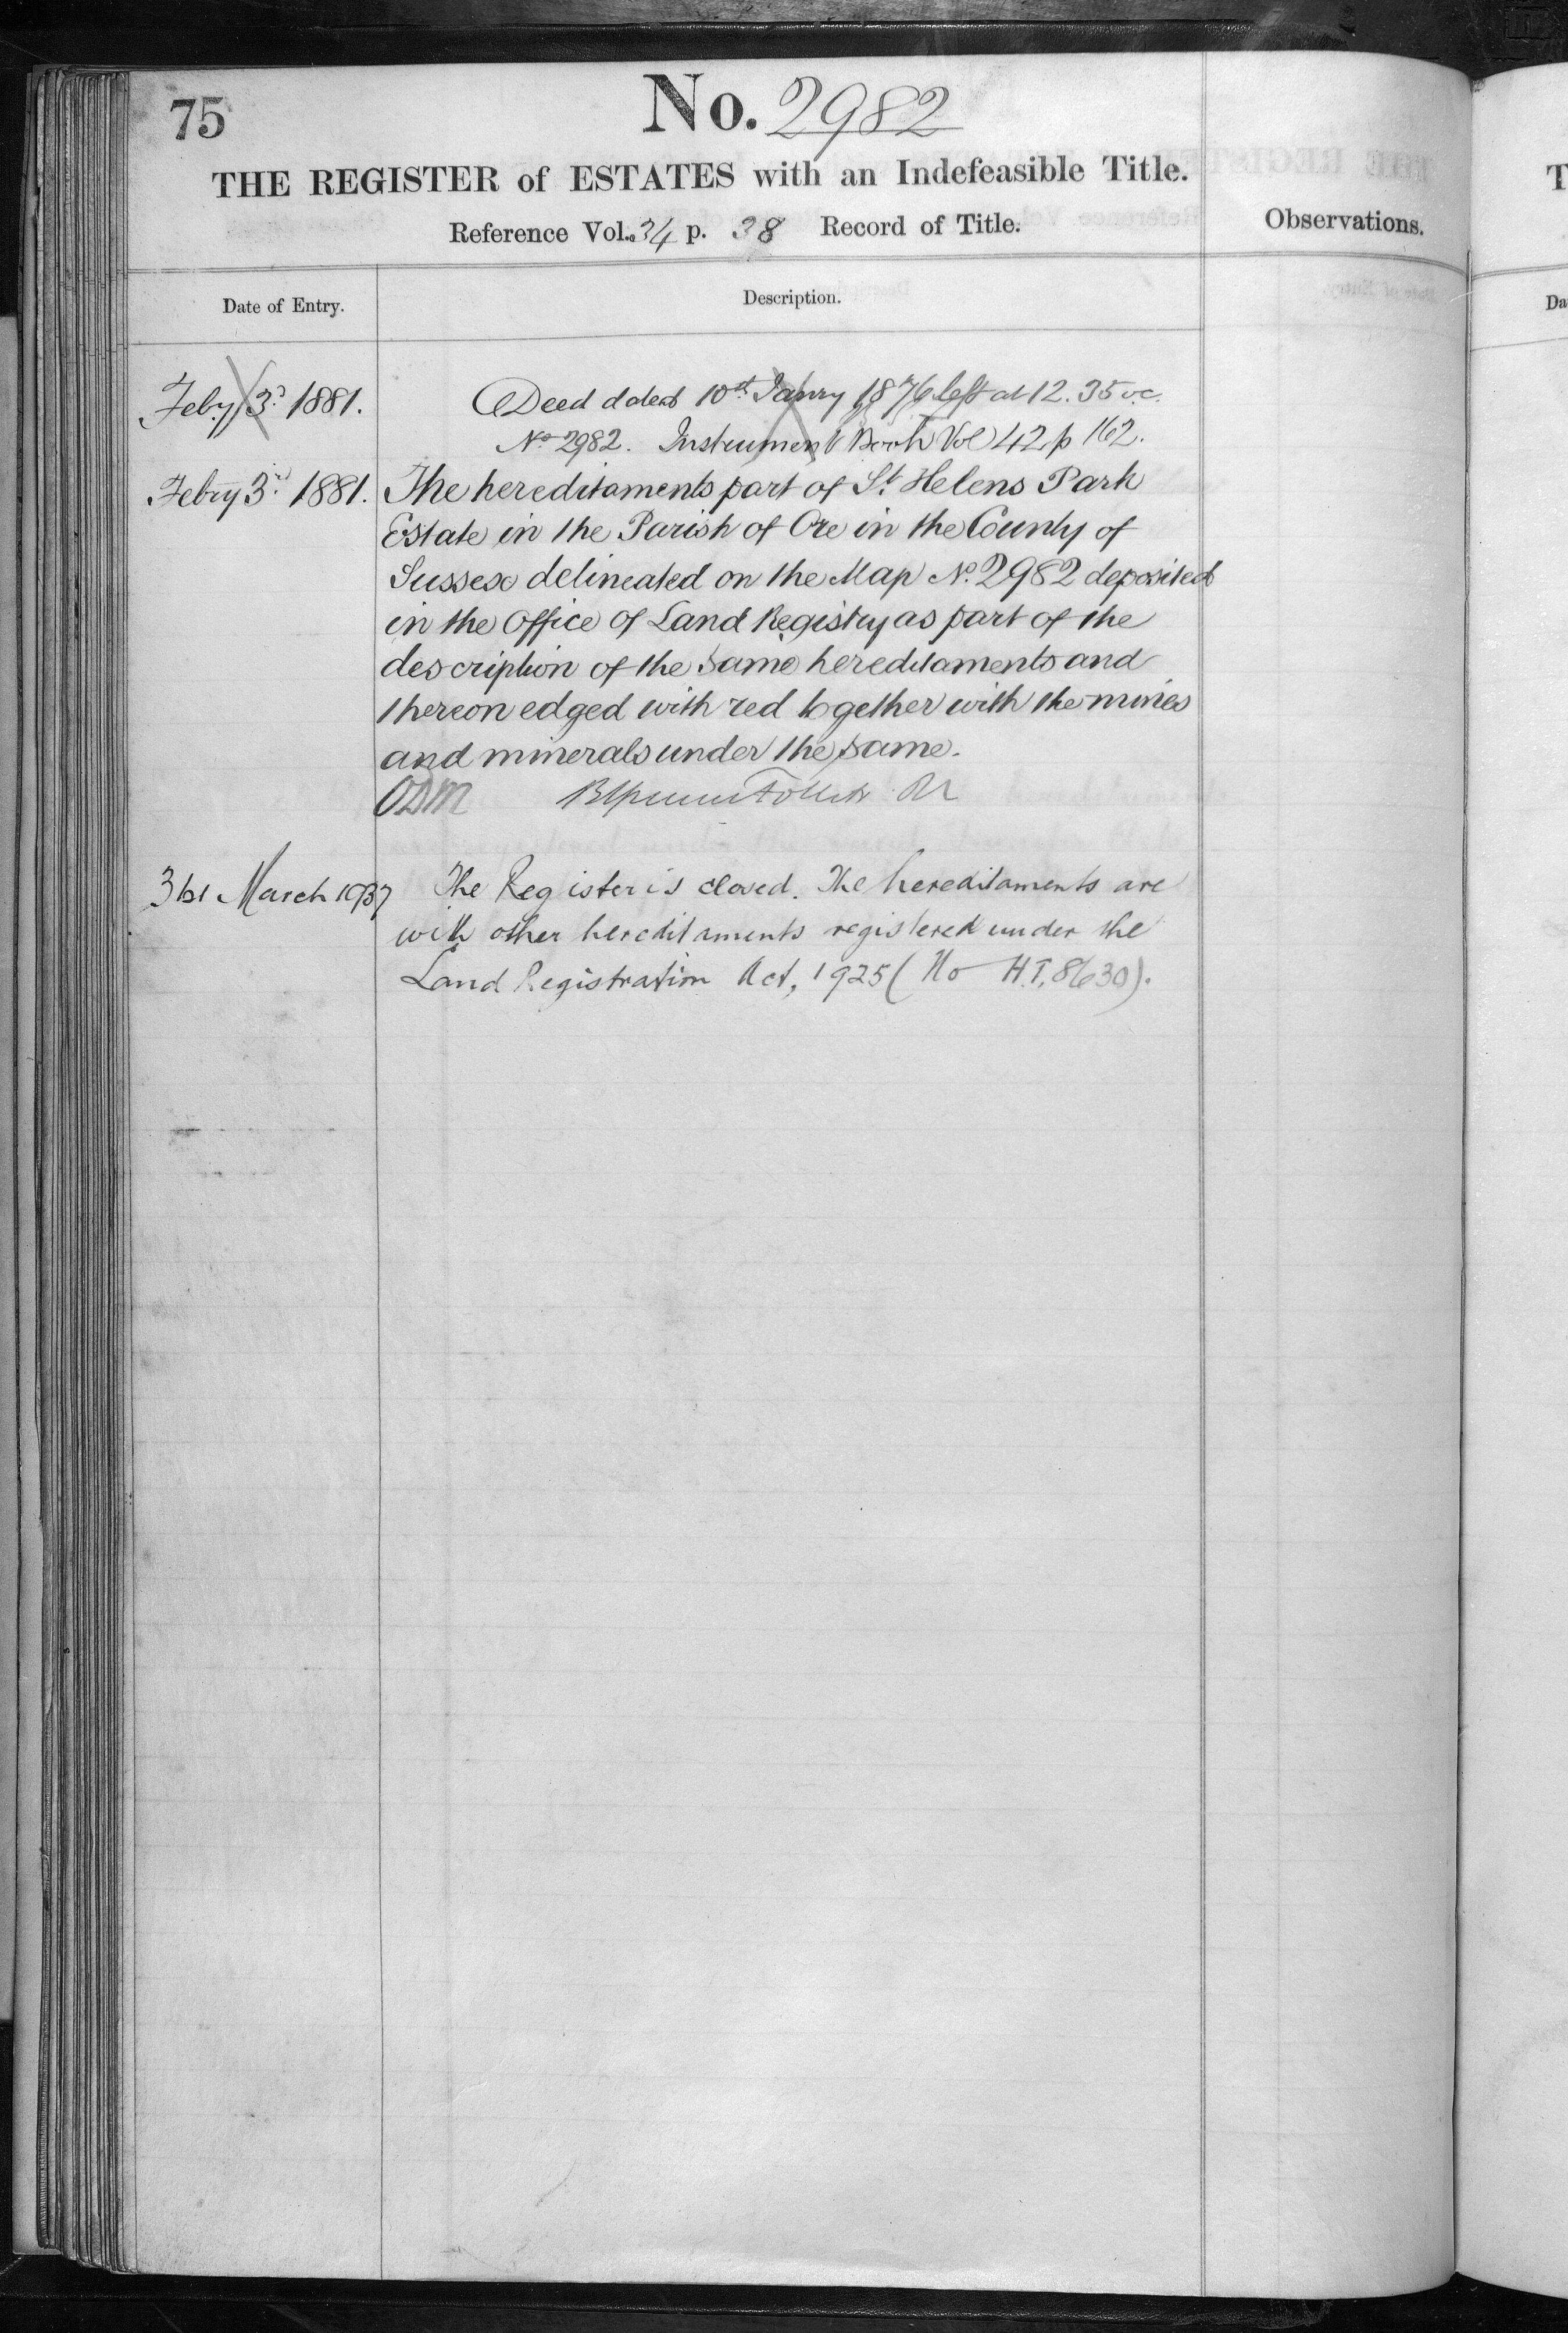 75
No. 2982
THE REGISTER of ESTATES with an Indefeasible Title.
Reference Vol. 34 p. 38 Record of Title.
Observations.
Date of Entry.
Description.
Feby 3d 1881. Deed dated 10th Janry 1876 left at 12.35
No 2982. Instrument Book Vol 42 p 162.
Febry 3d 1881. The hereditaments part of St Helens Park
Estate in the Parish of Ore in the County of
Sussex delineated on the Map No. 2982 deposited
in the Office of Land Registry as part of the
description of the same hereditaments and
thereon edged with red together with the mines
and minerals under the same.
31st March 1937 The Register is closed. The hereditaments are
with other hereditaments registered under the
Land Registration Act, 1925 (No H.T. 8630).
T
Da